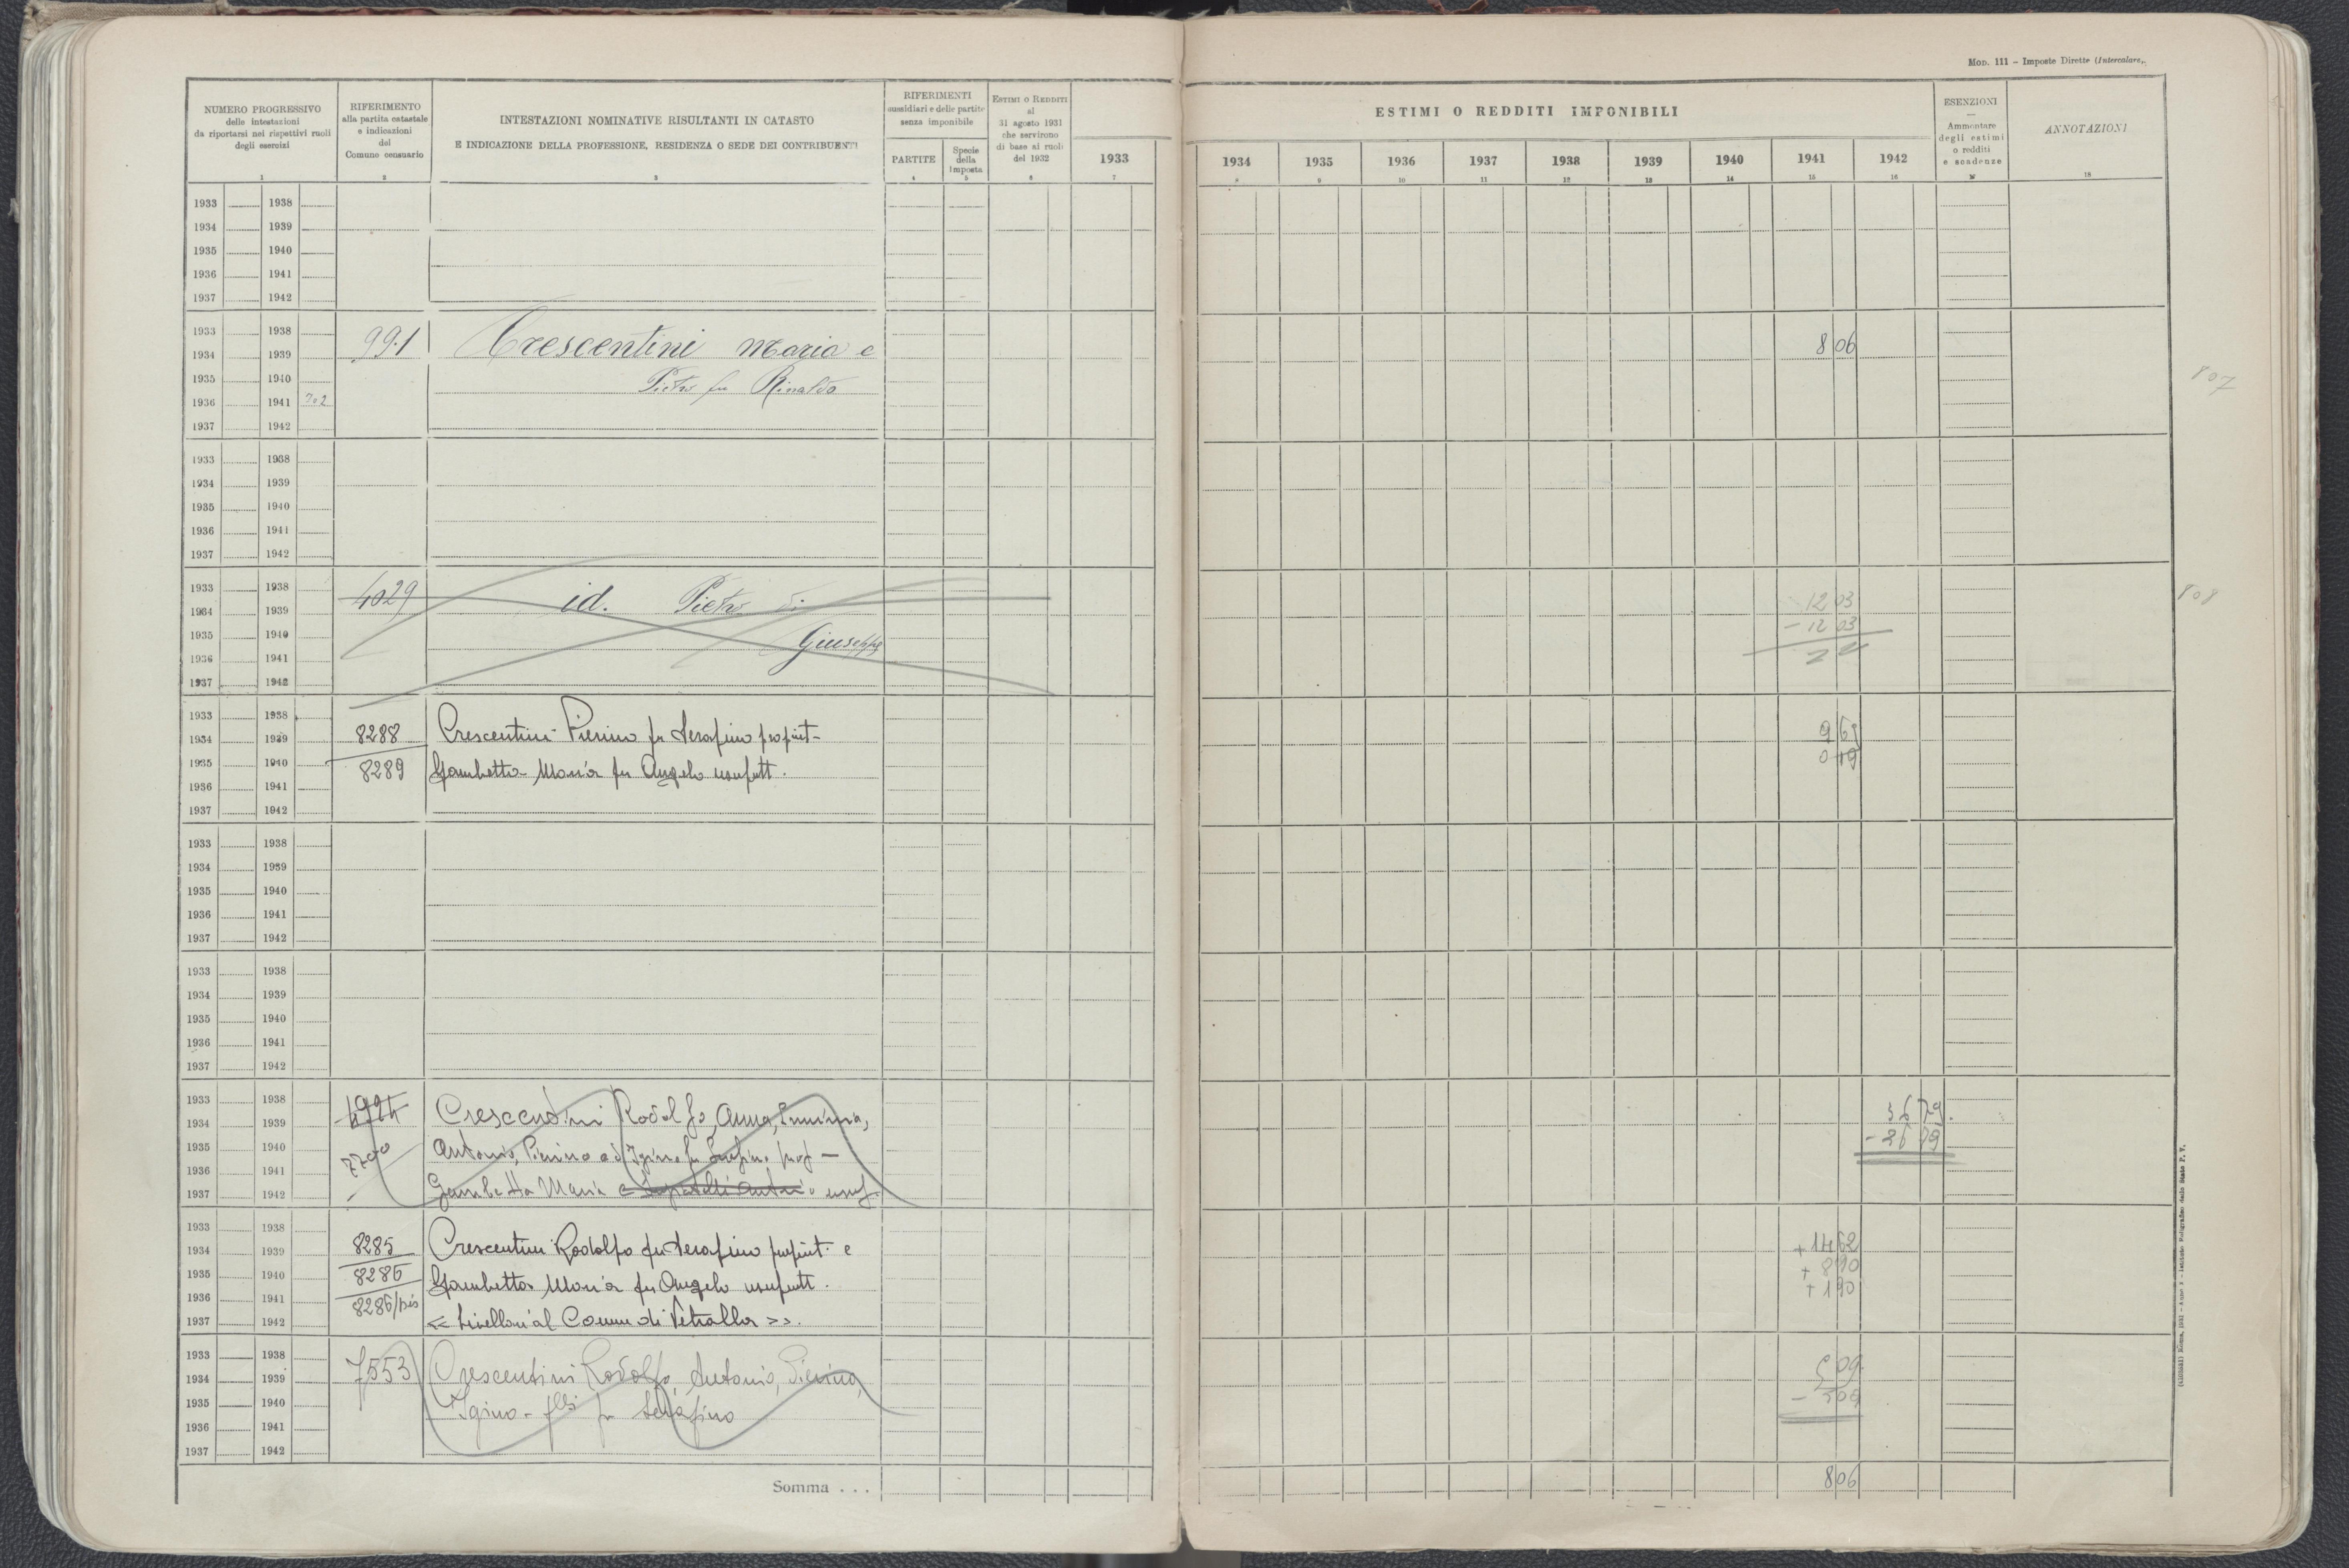 Mod. 111 – Imposte Dirette (Intercalare).
NUMERO PROGRESSIVO
delle intestazioni
da riportarsi nei rispettivi ruoli
degli esercizi
1
RIFERIMENTO
alla partita catastale
e indicazioni
del
Comune censuario
2
INTESTAZIONI NOMINATIVE RISULTANTI IN CATASTO
E INDICAZIONE DELLA PROFESSIONE, RESIDENZA O SEDE DEI CONTRIBUENTI
3
RIFERIMENTI
sussidiari e delle partite
senza imponibile
PARTITE
4
Specie
della
Imposta
5
ESTIMI O REDDITI
al
31 agosto 1931
che servirono
di base ai ruoli
del 1932
6
1933
7
ESTIMI O REDDITI IMPONIBILI
1934 1935 1936 1937 1938 1939 1940 1941 1942
8 9 10 11 12 13 14 15 16
ESENZIONI
Ammontare
degli estimi
o redditi
e scadenze
17
ANNOTAZIONI
18
1933 1938
1934 1939
1935 1940
1936 1941
1937 1942
1933 1938
1934 1939 991 Crescentini Maria e 806
1935 1940 Pietro fu Rinaldo 807
1936 1941 702
1937 1942
1933 1938
1934 1939
1935 1940
1936 1941
1937 1942
1933 1938 4029 id. Pietro di 1203 808
1934 1939 - 1203
1935 1940 Giuseppe
1936 1941
1937 1942
1933 1938
1934 1939 8288 Crescentini Pierino fu Serafino propriet-
1935 1940 8289 Gambetta Maria fu Angelo usufutt.
1936 1941
1937 1942
1933 1938
1934 1939
1935 1940
1936 1941
1937 1942
1933 1938
1934 1939
1935 1940
1936 1941
1937 1942
1933 1938
1934 1939 Crescentini Rodolfo, Anna,
1935 1940 7700 Antonio, Pierino ed Igino fu Serafino prop —
1936 1941
1937 1942 Gambetta Maria e usuf.
1933 1938
1934 1939 8285 Crescentini Rodolfo fu Serafino propriet. e + 1462
1935 1940 8286 Gambetta Maria fu Angelo usufutt. + 890
1936 1941 8286/bis + 190
1937 1942 << Livellari al Comun di Vetralla >>.
1933 1938
1934 1939 7553 Crescentini Rodolfo, Antonio, Pierino, 509
1935 1940 Igino - flli fu Serafino - 509
1936 1941
1937 1942
Somma . . . 806